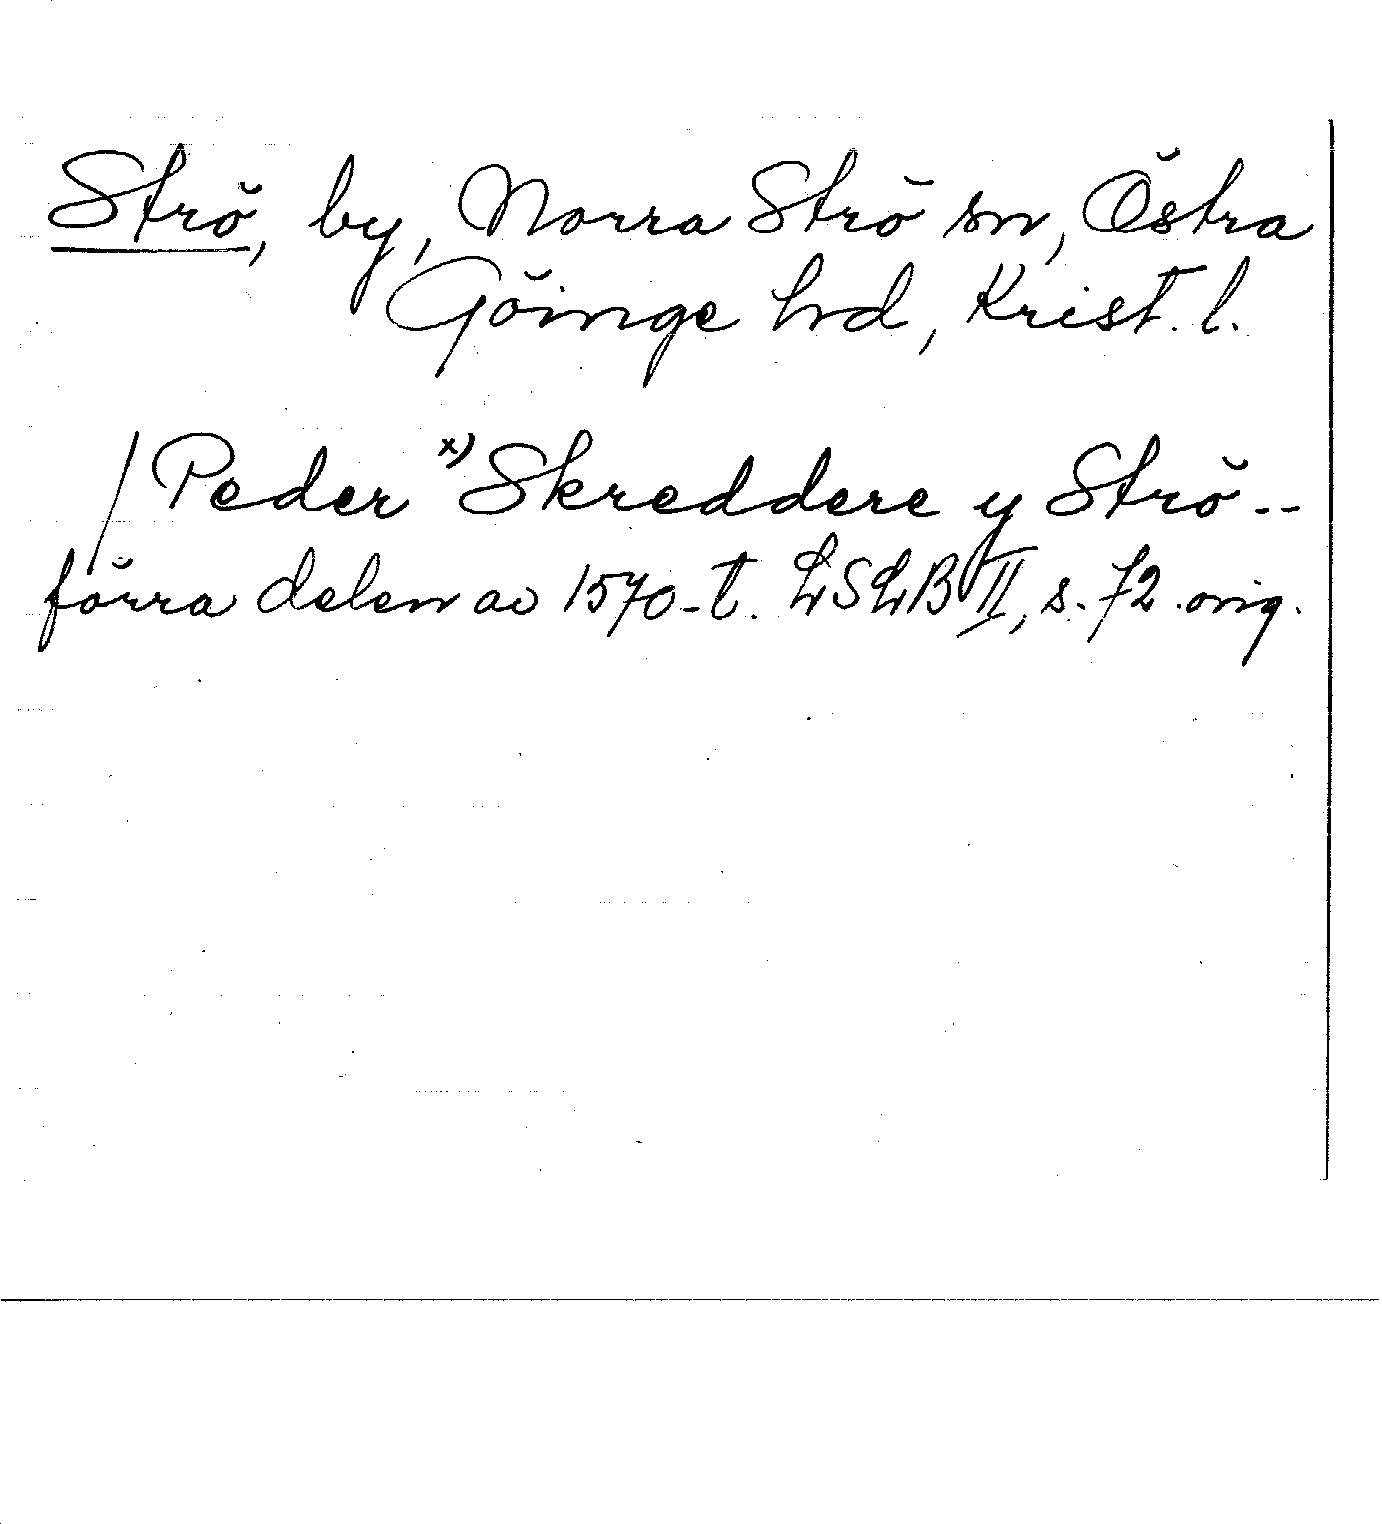 Strö, by, Norra Strö sn, Östra
Göinge hrd, Krist. l.
/ Peder x) Skreddere y Strö --
förra delen av 1570-t. LSLB II, s. 72 orig.